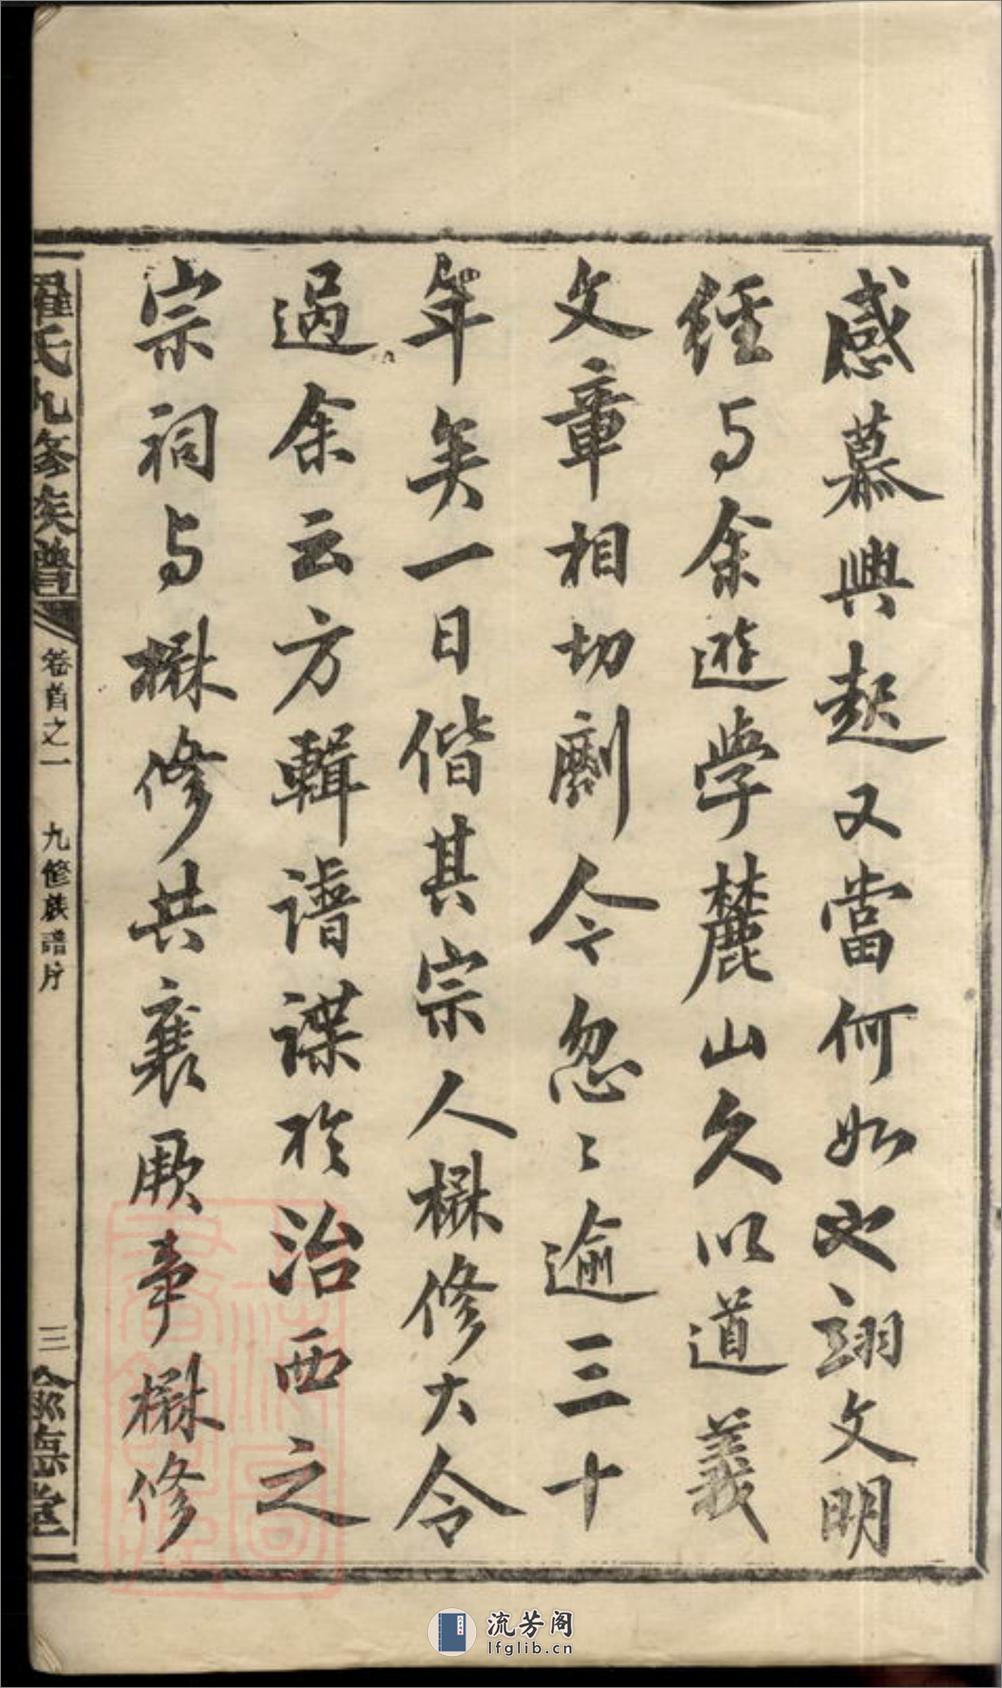 感慕興起又當何如也翊文明
經与余遊學麓山久以道義
文章相切劘今忽〻逾三十
年矣一日偕其宗人楙修大令
過余云方輯譜諜於治西之
宗祠与楙修共襄厥事楙修
羅氏九修族譜
卷首之一
九修族譜序
三
敦惇堂
流芳阁
lfglib.cn